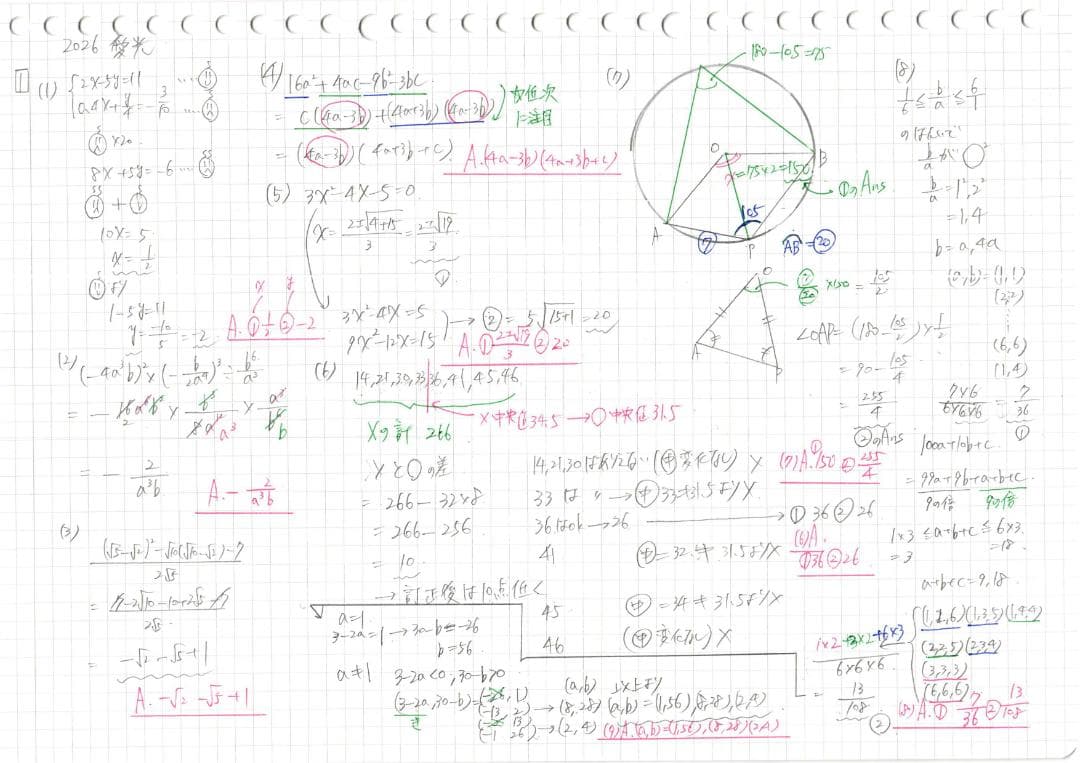 2026 愛光
1
(1) 2x-5y=11
0.4x+y/4=-3/10
×20
8x+5y=-6
10x=5
x=1/2
1-5y=11
y=-10/5=-2
A. ①1/2 ②-2
(2) (-4a³b)²×(-b/2a⁴)³÷b⁶/a³
=-2/a³b
A. -2/a³b
(3)
(√5-√2)²-√10(√10-√2)-7 / 2√5
=7-2√10-10+2√5-7 / 2√5
=-√2-√5+1
A. -√2-√5+1
(4) 16a²+4ac-9b²-3bc
=c(4a-3b)+(4a+3b)(4a-3b)
次に注目
=(4a-3b)(4a+3b+c)
A.(4a-3b)(4a+3b+c)
(5) 3x²-4x-5=0
x=2±√4+15/3=2±√19/3
3x²-4x=5
9x²-12x=15
→②=5√15+1=20
A. ①2±√19/3 ②20
(6)
14,21,30,33,36,41,45,46
×中央値34.5→○中央値31.5
×の計 266
×と○の差
=266-32×8
=266-256
=10
→訂正後は10点低く
14,21,30はありえない(中変化なし)×
33は〃→中33≠31.5より×
36はok→26
①36②26
41
中=32≠31.5より×
(6)A.
①36②26
45
中=34≠31.5より×
46
(中変化なし)×
a=1
3-2a=1→30-b=-26
b=56
a≠1
3-2a<0,30-b>0
(3-2a,30-b)=(-26,1)
(-13,2)→(8,28)
(-2,13)
(-1,26)→(2,4)
(a,b) 以上より
(a,b)=(1,56),(8,28),(2,4)
(9)A.(a,b)=(1,56),(8,28)(2,4)
(7)
180-105=75
O
B
x=75×2=150
①のAns
105
A
⑦
P
AB=⑳
O
⑦/⑳×150=105/2
A
P
∠OAP=(180-105/2)×1/2
=90-105/4
=255/4
②のAns
(7)A.①150②255/4
(8)
1/6≦b/a≦6/1
b/aが○²
b/a=1²,2²
=1,4
b=a,4a
(a,b)=(1,1)
(2,2)
(6,6)
(1,4)
7×6/6×6×6=7/36
①
100a+10b+c
=99a+9b+a+b+c
9の倍 9の倍
1×3≦a+b+c≦6×3
=3
=18
a+b+c=9,18
(1,2,6)(1,3,5)(1,4,4)
(2,2,5)(2,3,4)
(3,3,3)
(6,6,6)
1×2+3×2+6×3/6×6×6
=13/108
②
(8)A.①7/36②13/108